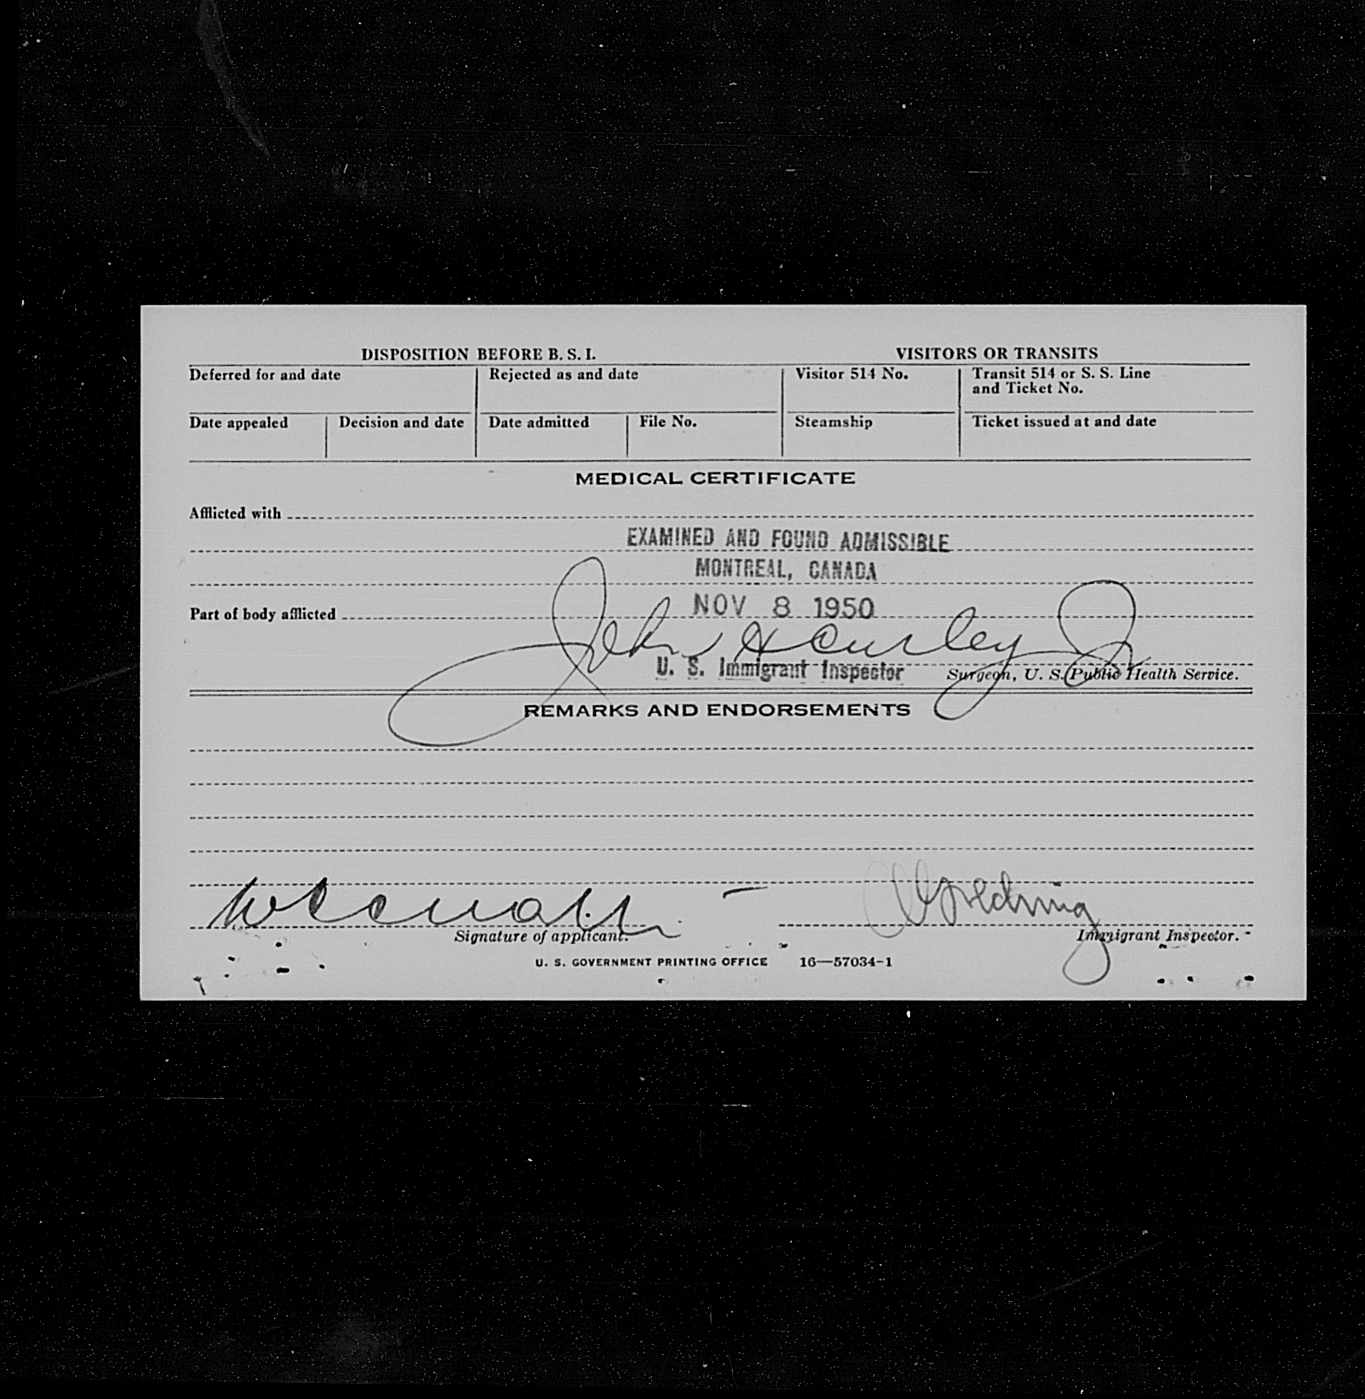 DISPOSITION BEFORE B. S. I. VISITORS OR TRANSITS
Deferred for and date Rejected as and date Visitor 514 No. Transit 514 or S. S. Line
and Ticket No.
Date appealed Decision and date Date admitted File No. Steamship Ticket issued at and date
MEDICAL CERTIFICATE
Afflicted with
EXAMINED AND FOUND ADMISSIBLE
MONTREAL, CANADA
Part of body afflicted NOV 8 1950
John H Curley Jr
U. S. Immigrant Inspector Surgeon, U. S. Public Health Service.
REMARKS AND ENDORSEMENTS
Signature of applicant. Immigrant Inspector.
U. S. GOVERNMENT PRINTING OFFICE 16—57034-1